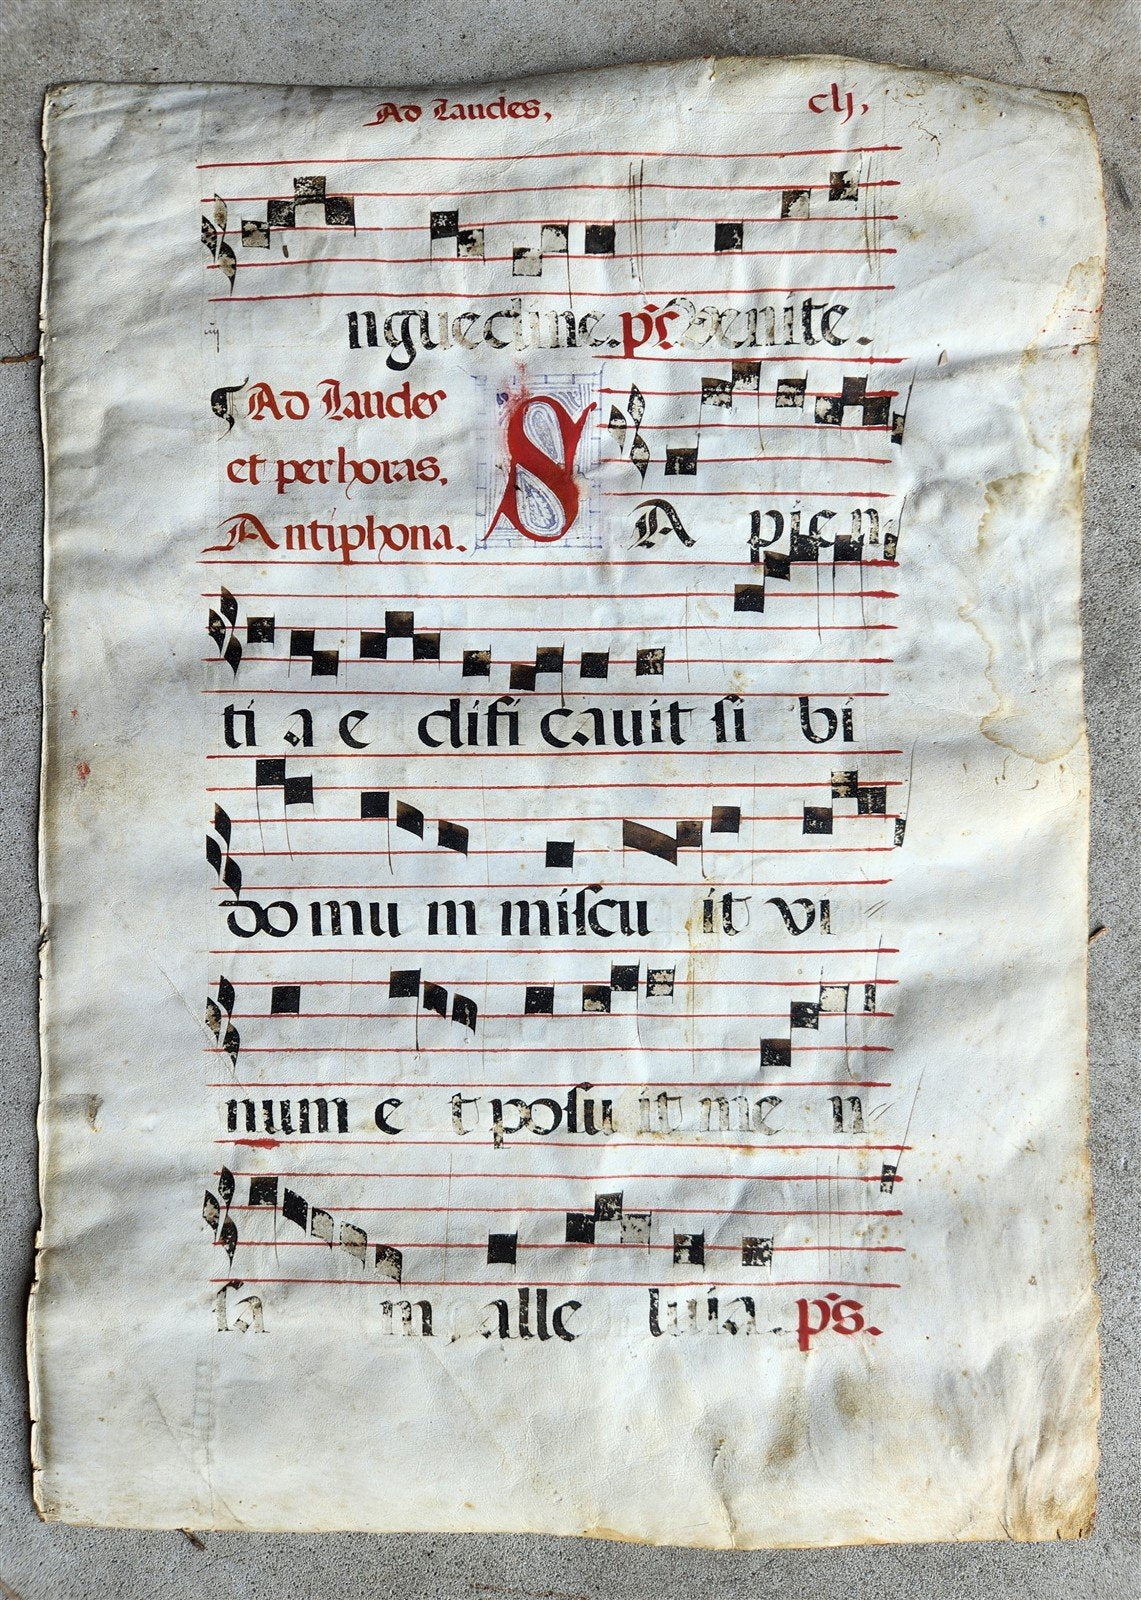 Ad Laudes, clj,
nguedine. ps. Venite.
Ad Laudes
et per horas,
Antiphona.
SA pien
ti a e difi cauit si bi
domu m miscu it vi
num e t posu it me n
sa m, alle luia. ps.